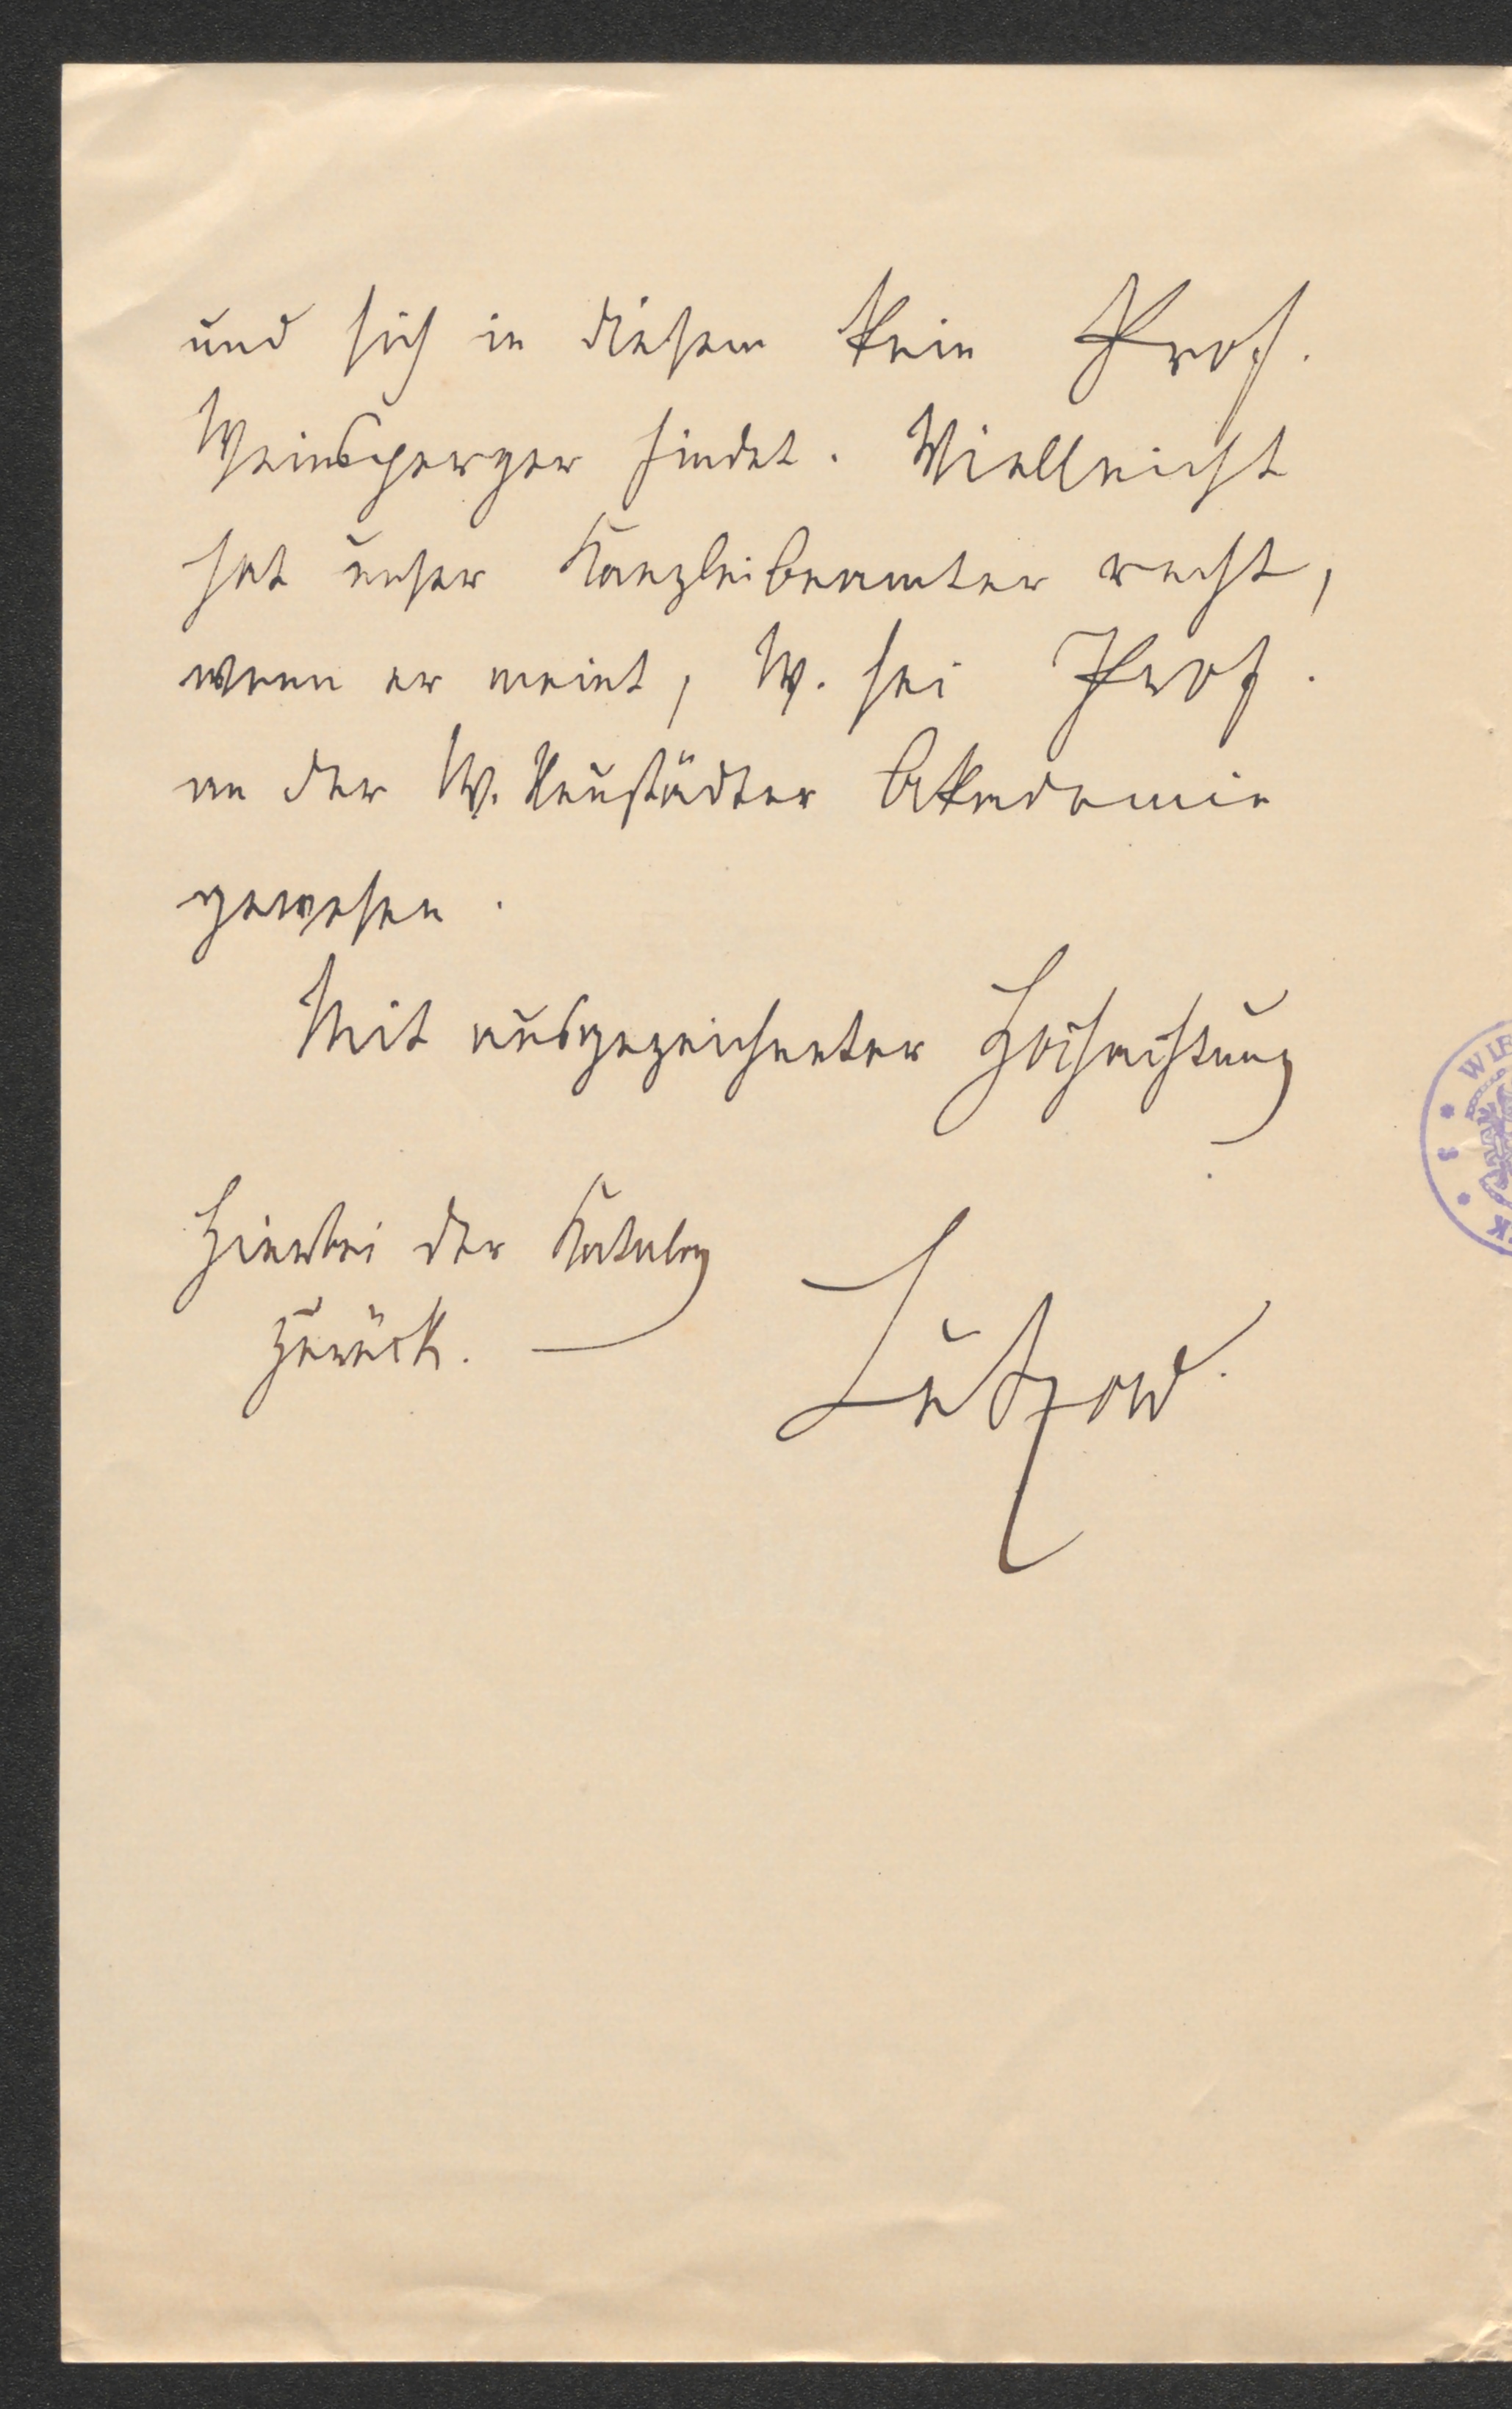 und sich in diesem kein Prof.
findet. Vielleicht
hat unser Kanzleibeamter recht,
wenn er meint, W. sei Prof.
an der W. Neustädter Akademie
gewesen.
Mit ausgezeichneter Hochachtung
Hierbei der Katalog
zurück.
Lützow.
WIE